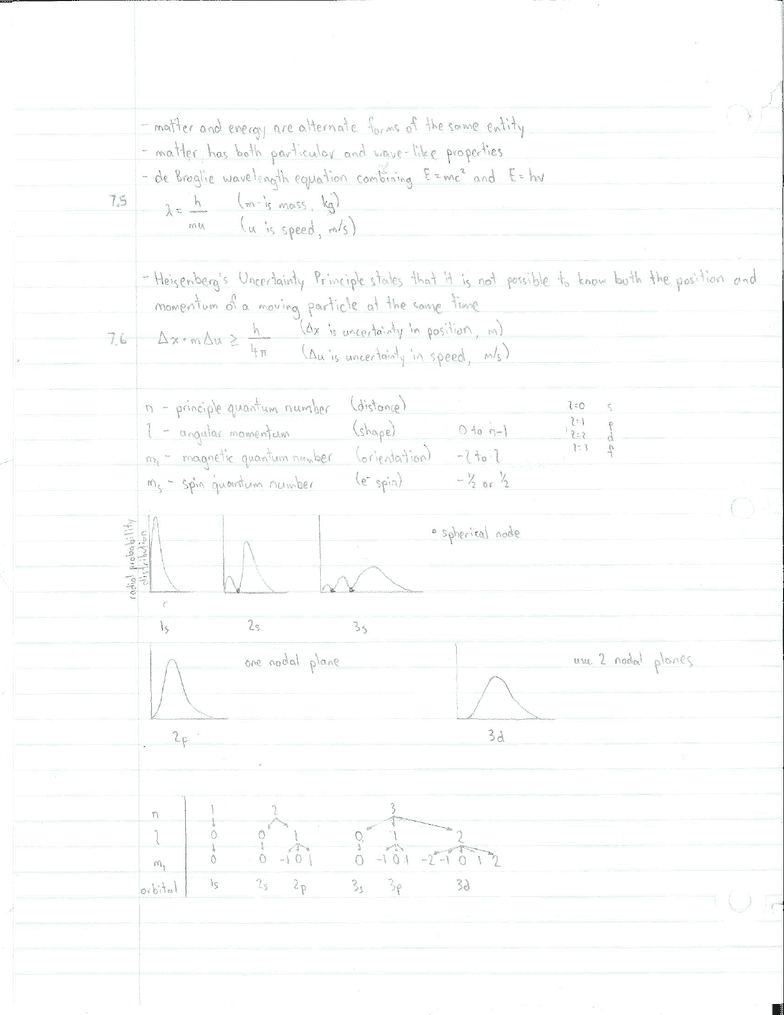 - matter and energy are alternate forms of the same entity
- matter has both particular and wave-like properties
- de Broglie wavelength equation combining E=mc² and E=hν
7.5 λ = h/mu (m is mass, kg)
(u is speed, m/s)
- Heisenberg's Uncertainty Principle states that it is not possible to know both the position and
momentum of a moving particle at the same time
7.6 Δx·mΔu ≥ h/4π (Δx is uncertainty in position, m)
(Δu is uncertainty in speed, m/s)
n - principle quantum number (distance) l=0 s
l - angular momentum (shape) 0 to n-1 l=1 p
l=2 d
mₗ - magnetic quantum number (orientation) -l to l l=3 f
mₛ - spin quantum number (e⁻ spin) -½ or ½
radial probability
distribution
• spherical node
r
1s 2s 3s
one nodal plane 2 nodal planes
2p 3d
n 1 2 3
l 0 0 1 0 1 2
mₗ 0 0 -1 0 1 0 -1 0 1 -2 -1 0 1 2
orbital 1s 2s 2p 3s 3p 3d